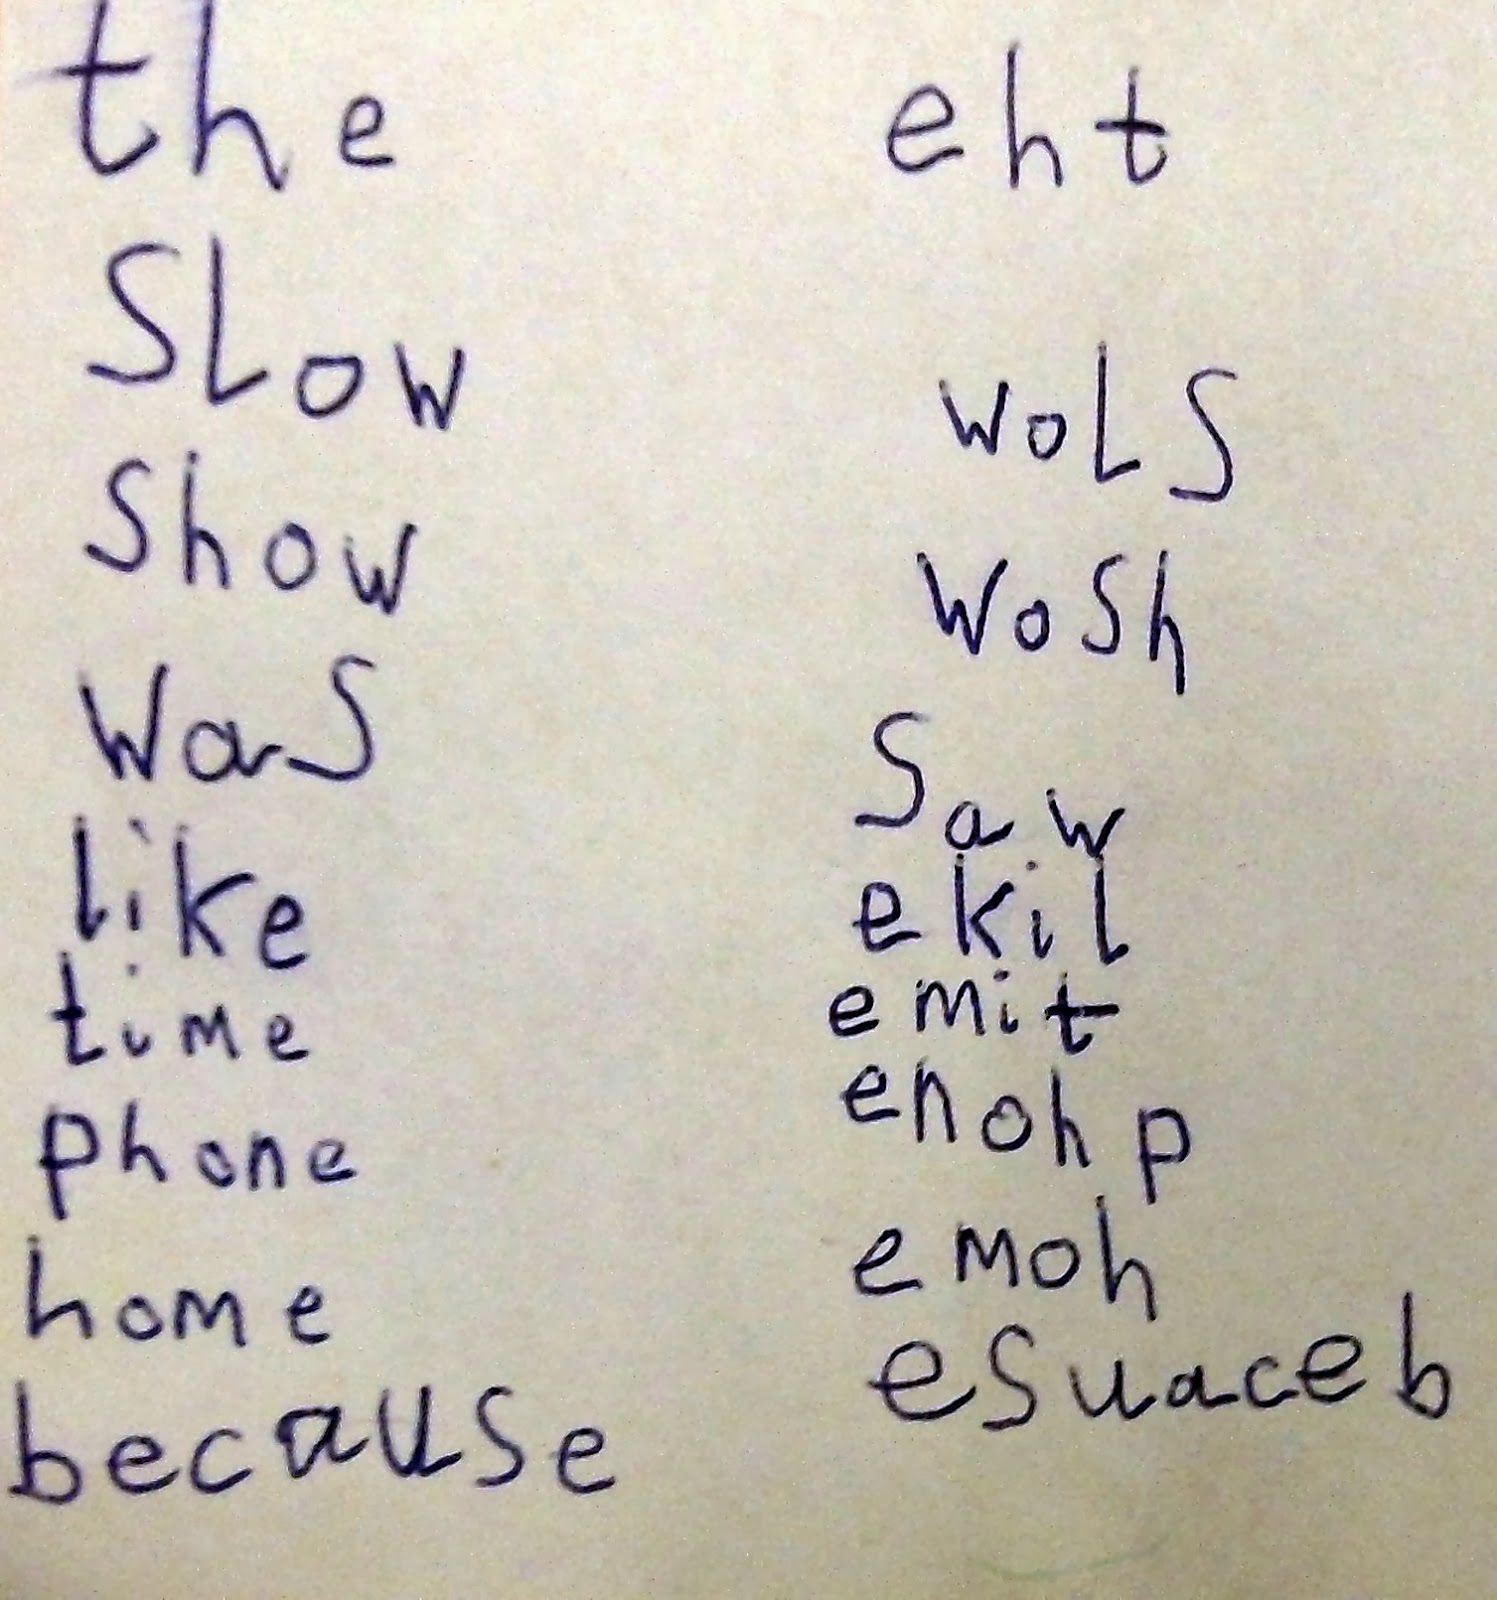 the eht
SLow woLS
Show WoSh
WaS Saw
like ekil
time emit
phone enohp
home emoh
because esuaceb